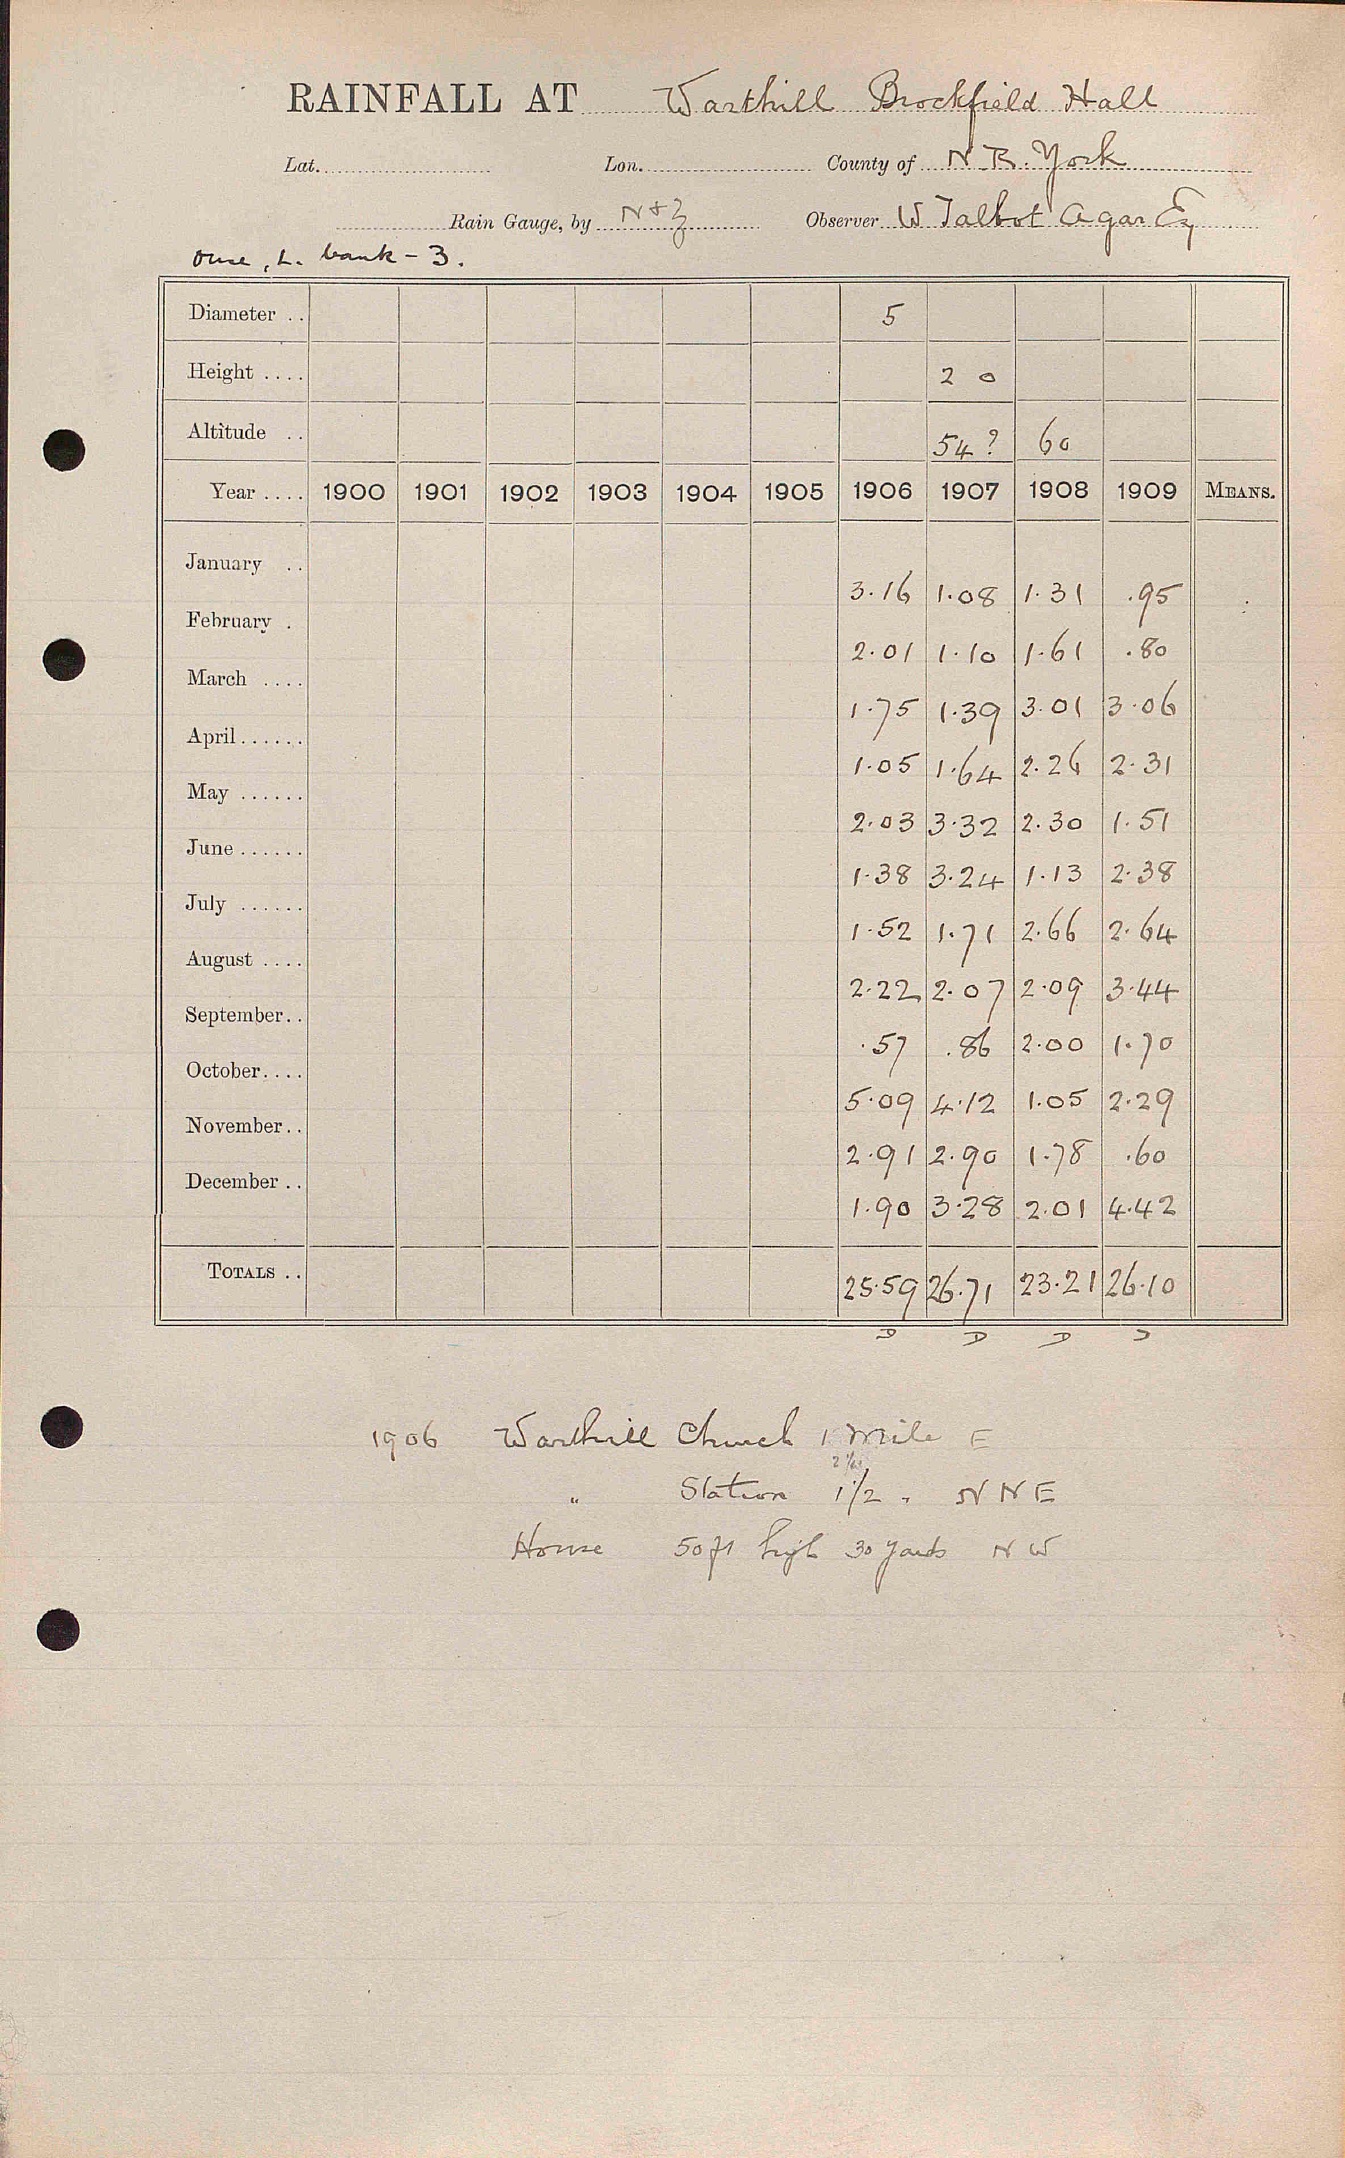 RAINFALL AT Warthill Brockfield Hall
Lat. Lon. County of N.R. York
Rain Gauge, by N+Z Observer W Talbot Agar Esq
Ouse, L. bank - 3.
Diameter .. 5
Height .... 2 0
Altitude .. 54? 60
Year .... 1900 1901 1902 1903 1904 1905 1906 1907 1908 1909 MEANS.
January .. 3.16 1.08 1.31 .95
February . 2.01 1.10 1.61 .80
March .... 1.75 1.39 3.01 3.06
April...... 1.05 1.64 2.26 2.31
May ...... 2.03 3.32 2.30 1.51
June...... 1.38 3.24 1.13 2.38
July ...... 1.52 1.71 2.66 2.64
August .... 2.22 2.07 2.09 3.44
September.. .57 .86 2.00 1.70
October.... 5.09 4.12 1.05 2.29
November.. 2.91 2.90 1.78 .60
December .. 1.90 3.28 2.01 4.42
TOTALS .. 25.59 26.71 23.21 26.10
1906 Warthill Church 1 Mile E
" Station 1 1/2 " N N E
House 50 ft high 30 yards N W